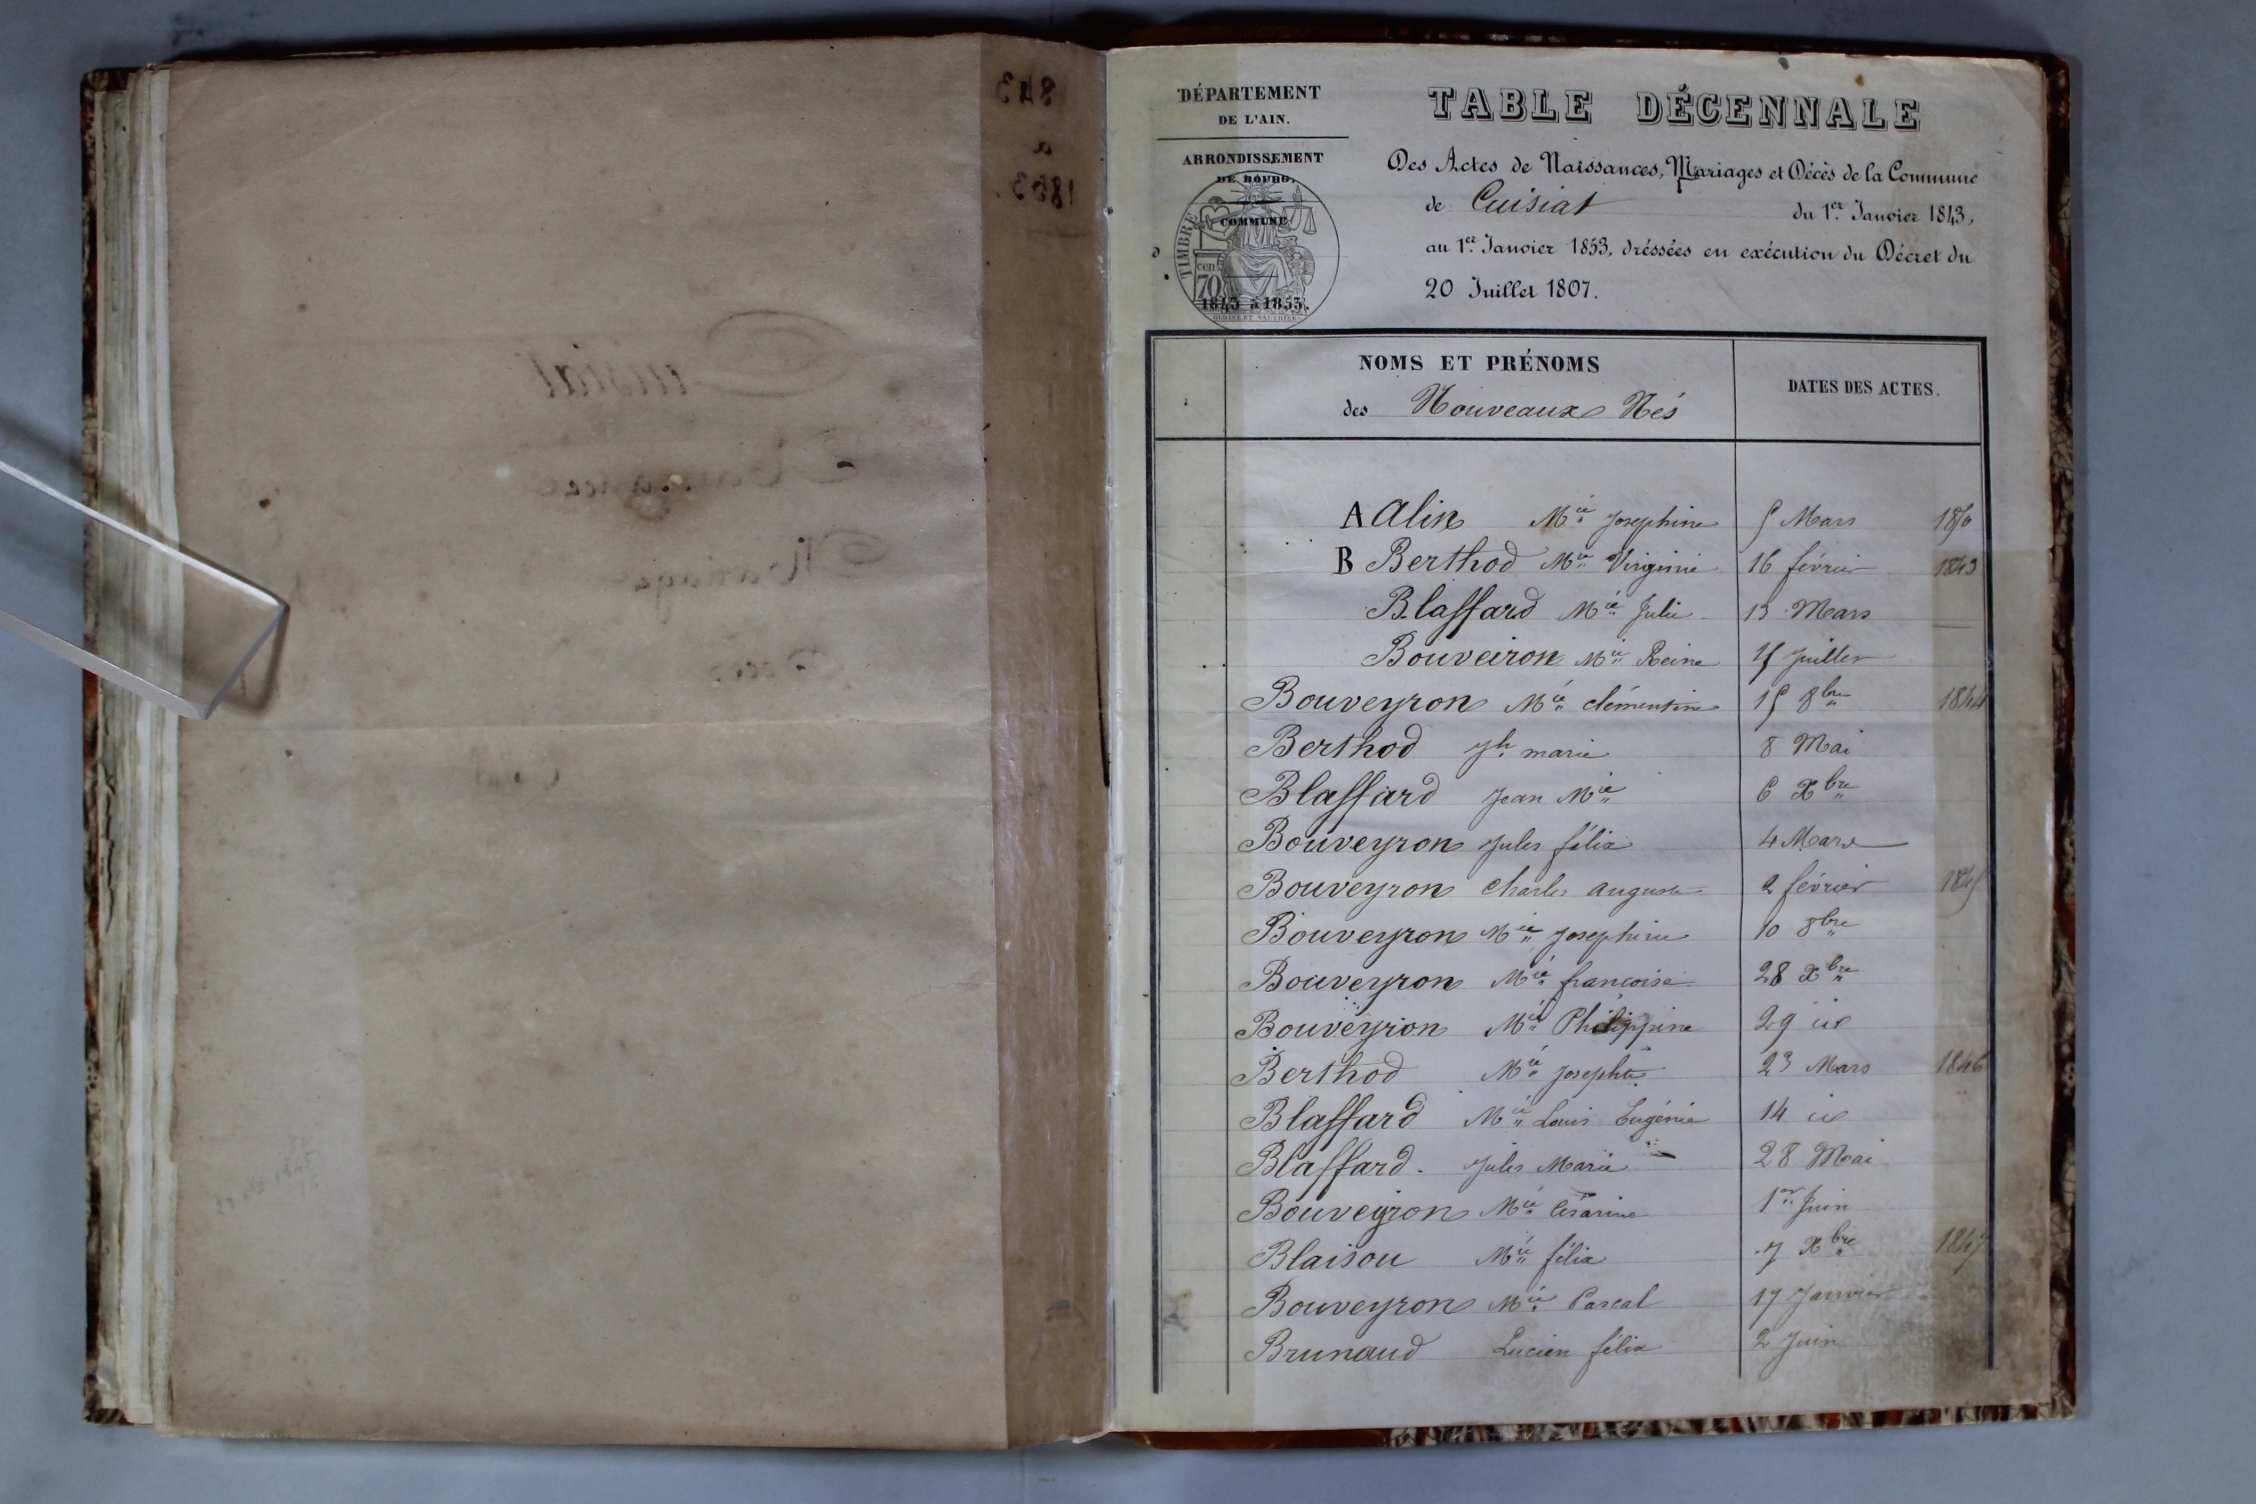 1843
a
1853.
Cuisiat
Naissances
Mariages
Décès
DÉPARTEMENT
DE L'AIN.
ARRONDISSEMENT
DE BOURG.
COMMUNE
TIMBRE
cen
70
1843 à 1853.
TABLE DÉCENNALE
Des Actes de Naissances, Mariages et Décès de la Commune
de Cuisiat du 1er. Janvier 1843,
au 1er. Janvier 1853, dréssées en exécution du Décret du
20 Juillet 1807.
NOMS ET PRÉNOMS
des Nouveaux Nés
DATES DES ACTES.
A Alin Mie Josephine 5 Mars 1850
B Berthod Mie Virginie 16 février 1843
Blaffard Mie Julie 13 Mars
Bouveiron Mie Reine 15 Juillet
Bouveyron Mie clémentine 15 8bre 1844
Berthod Jh marie 8 Mai
Blaffard Jean Mie 6 Xbre
Bouveyron Jules félix 4 Mars
Bouveyron Charles auguste 2 février 1845
Bouveyron Mie Josephine 10 8bre
Bouveyron Mie francoise 28 Xbre
Bouveyron Mie Philippine 29 id
Berthod Mie Josephte 23 Mars 1846
Blaffard Mie Louis Eugénie 14 id
Blaffard. Jules Marie 28 Mai
Bouveyron Mie Césarine 1er Juin
Blaisou Mie félix 7 Xbre 1847
Bouveyron Mie Pascal 17 Janvier
Brunaud Lucien félix 2 Juin